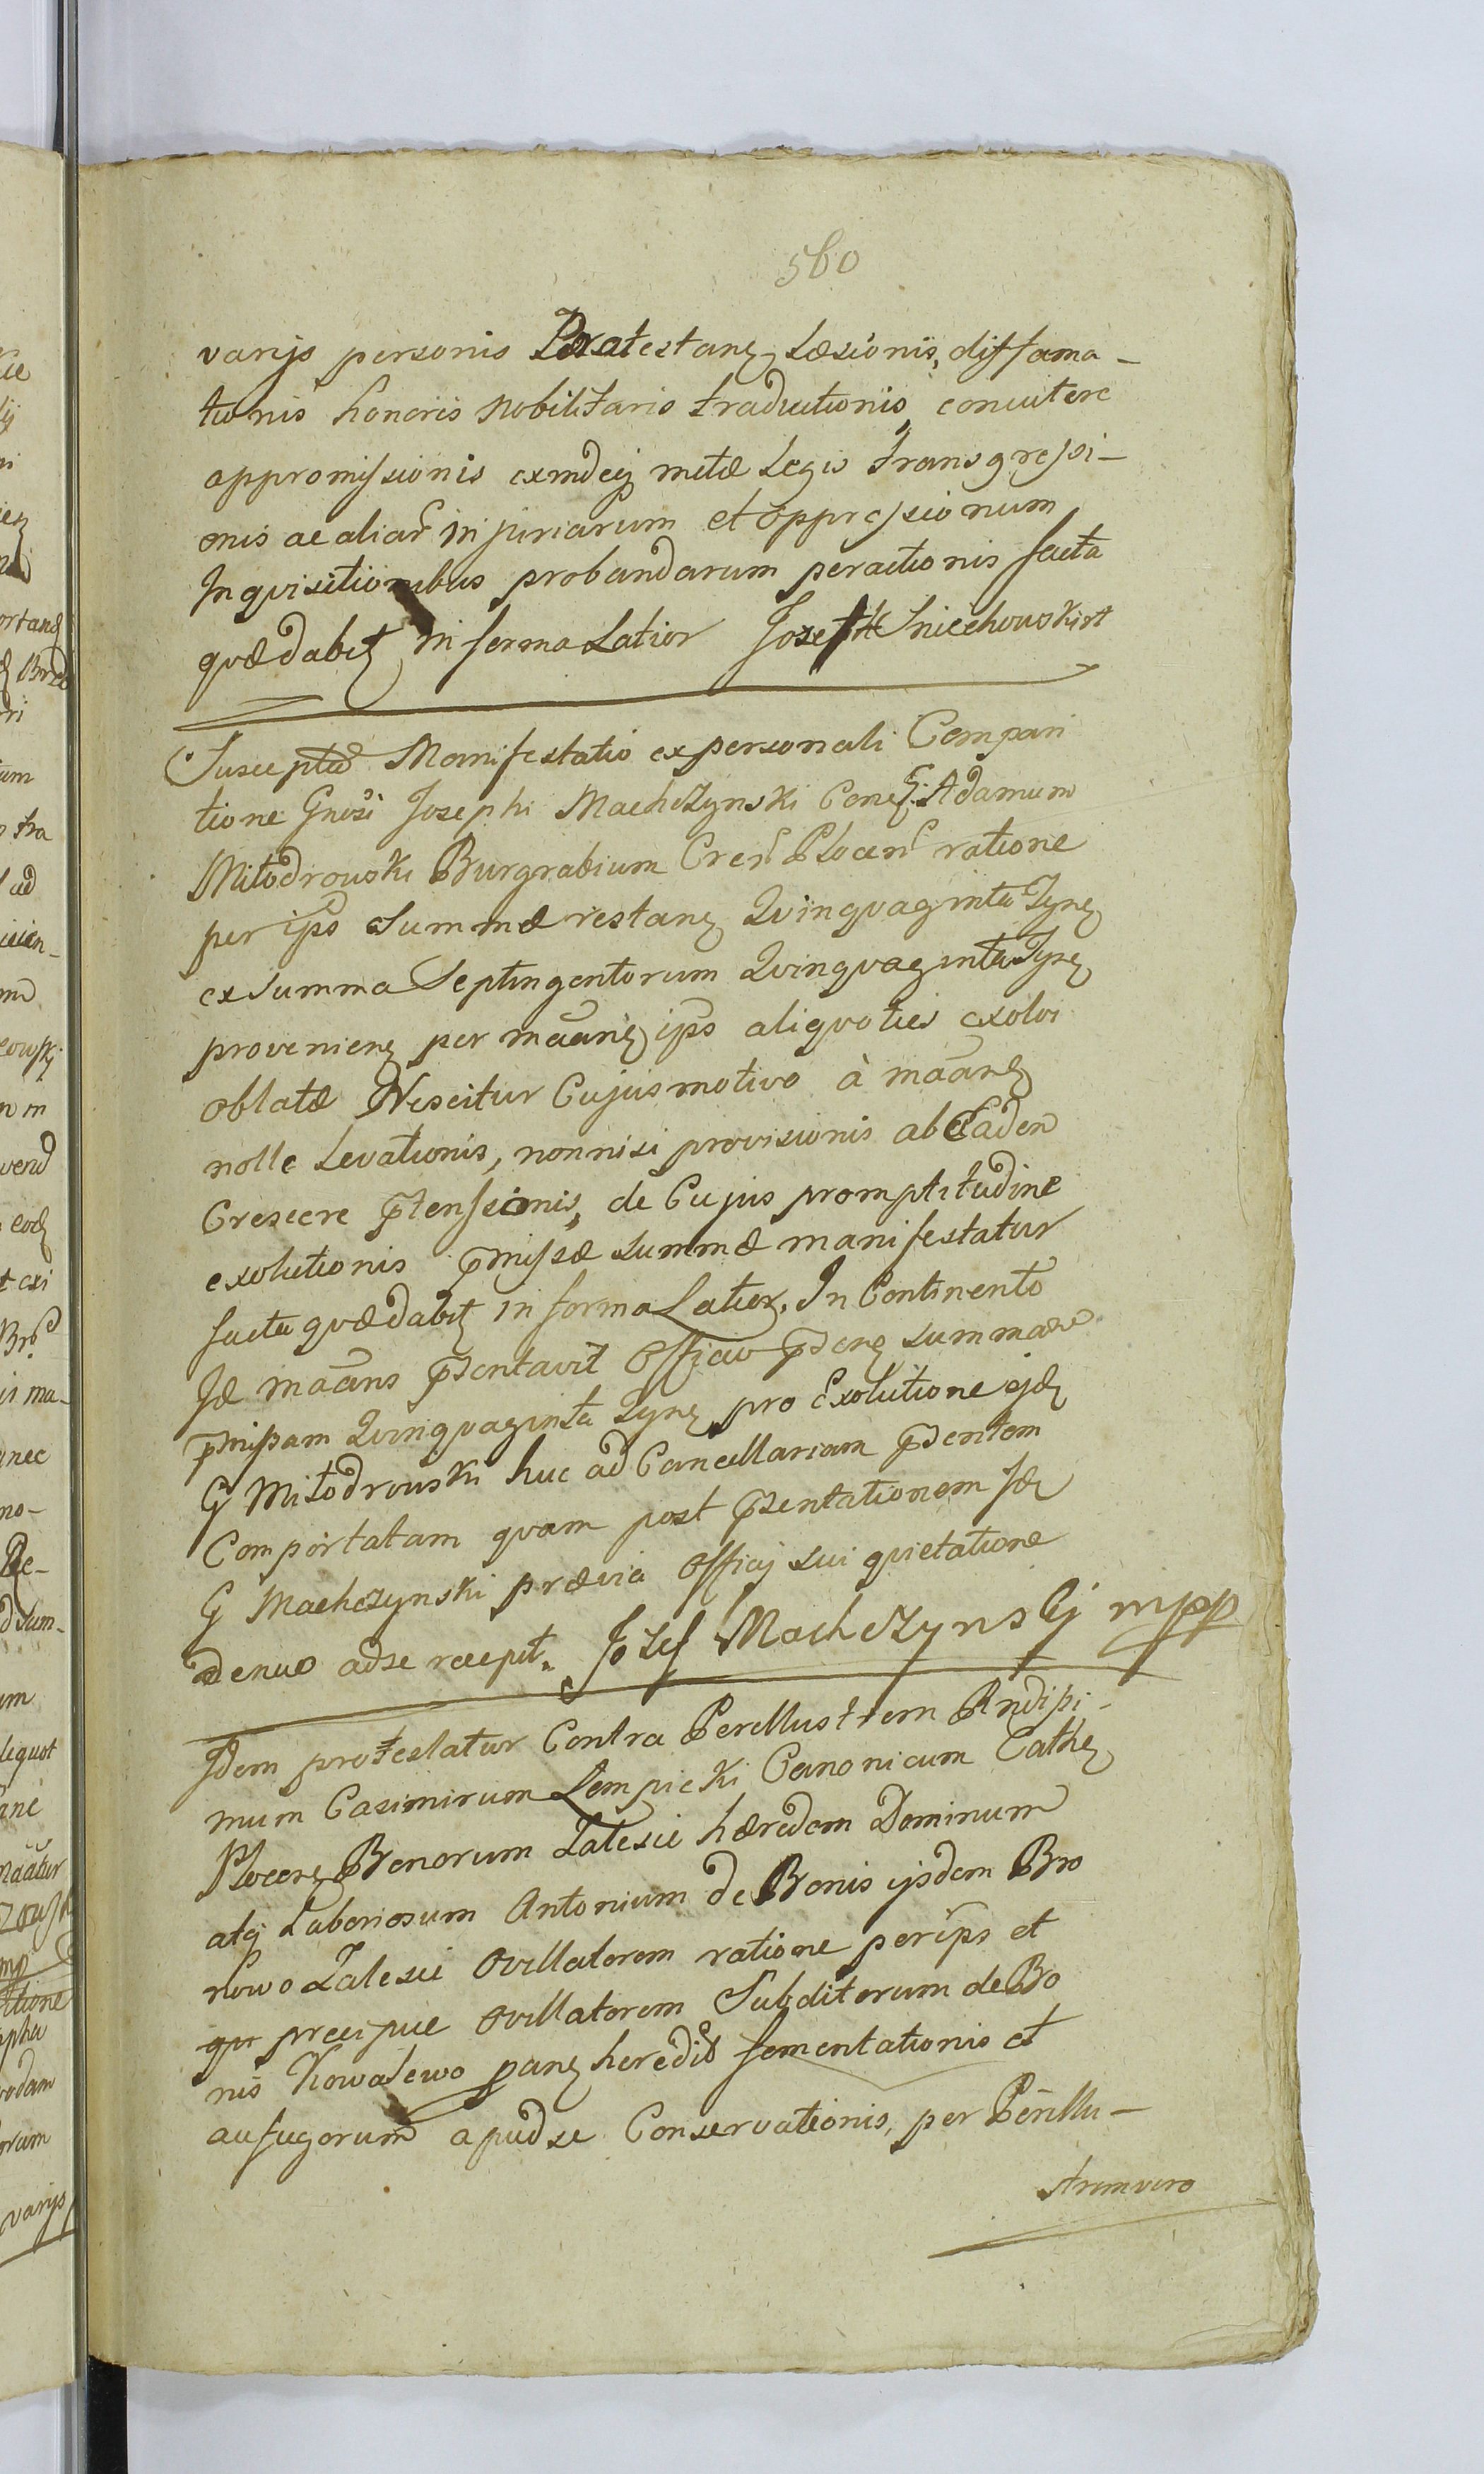 560
varijs personis Protestanꝫ, Læsionis, diffama-
tionis honoris nobilitaris traductionis, concutere
appromissionis exindeq metæ Legis transgressi-
onis ac aliar injuriarum et oppressionum
Inqvisitionibus probandarum peractionis facta
qvæ dabitꝫ in forma Latior Joseph Sniechowski
Suscepta Manifestatio ex personali Compari
tione Gnosi Josephi Machczynski Conꝫ G: Adamum
Miłodrowski Burgrabium Cren Plocen ratione
per ips Summæ restanꝫ Qvinqvaginta Tynꝫ
ex Summa Septingentorum Qvinqvaginta Tynꝫ
provenienꝫ per maanꝫ ips aliqvoties exolvi
oblatæ Nescitur Cujus motivo à maanꝫ
nolle Levationis, nonnisi provisionis ab Eaden
Crescere ptensionis, de Cujus promptitudine
exolutionis pmissæ Summæ manifestatur
facta qvæ dabitꝫ in forma Latior. In Continento
Id maans psentavit Officio psenꝫ summam
pmissam Qvinqvaginta Tynꝫ pro Exolutione ejdꝫ
G Miłodrowski huc ad Cancellariam psentem
Comportatam qvam post psentationem Idꝫ
G Machczynski prævia Officij sui qvietatione
denuo ad se recepit. Jozef Machczynskj mpp
Idem protestatur Contra Perillustrem Rndissi-
mum Casimirum Lempicki Canonicum Cathꝫ
Plocenꝫ Bonorum Zalesie hæredem Dominum
atq Laboriosum Antonium de Bonis ijsdem Bro
nowo Zalesie Ovillatorem ratione per ips et
qvi præcipue Ovillatorem Subditorum de Bo
nis Kowalewo panꝫ heredit fomentationis et
aufugorum apud se Conservationis, per Perillu-
strem vero